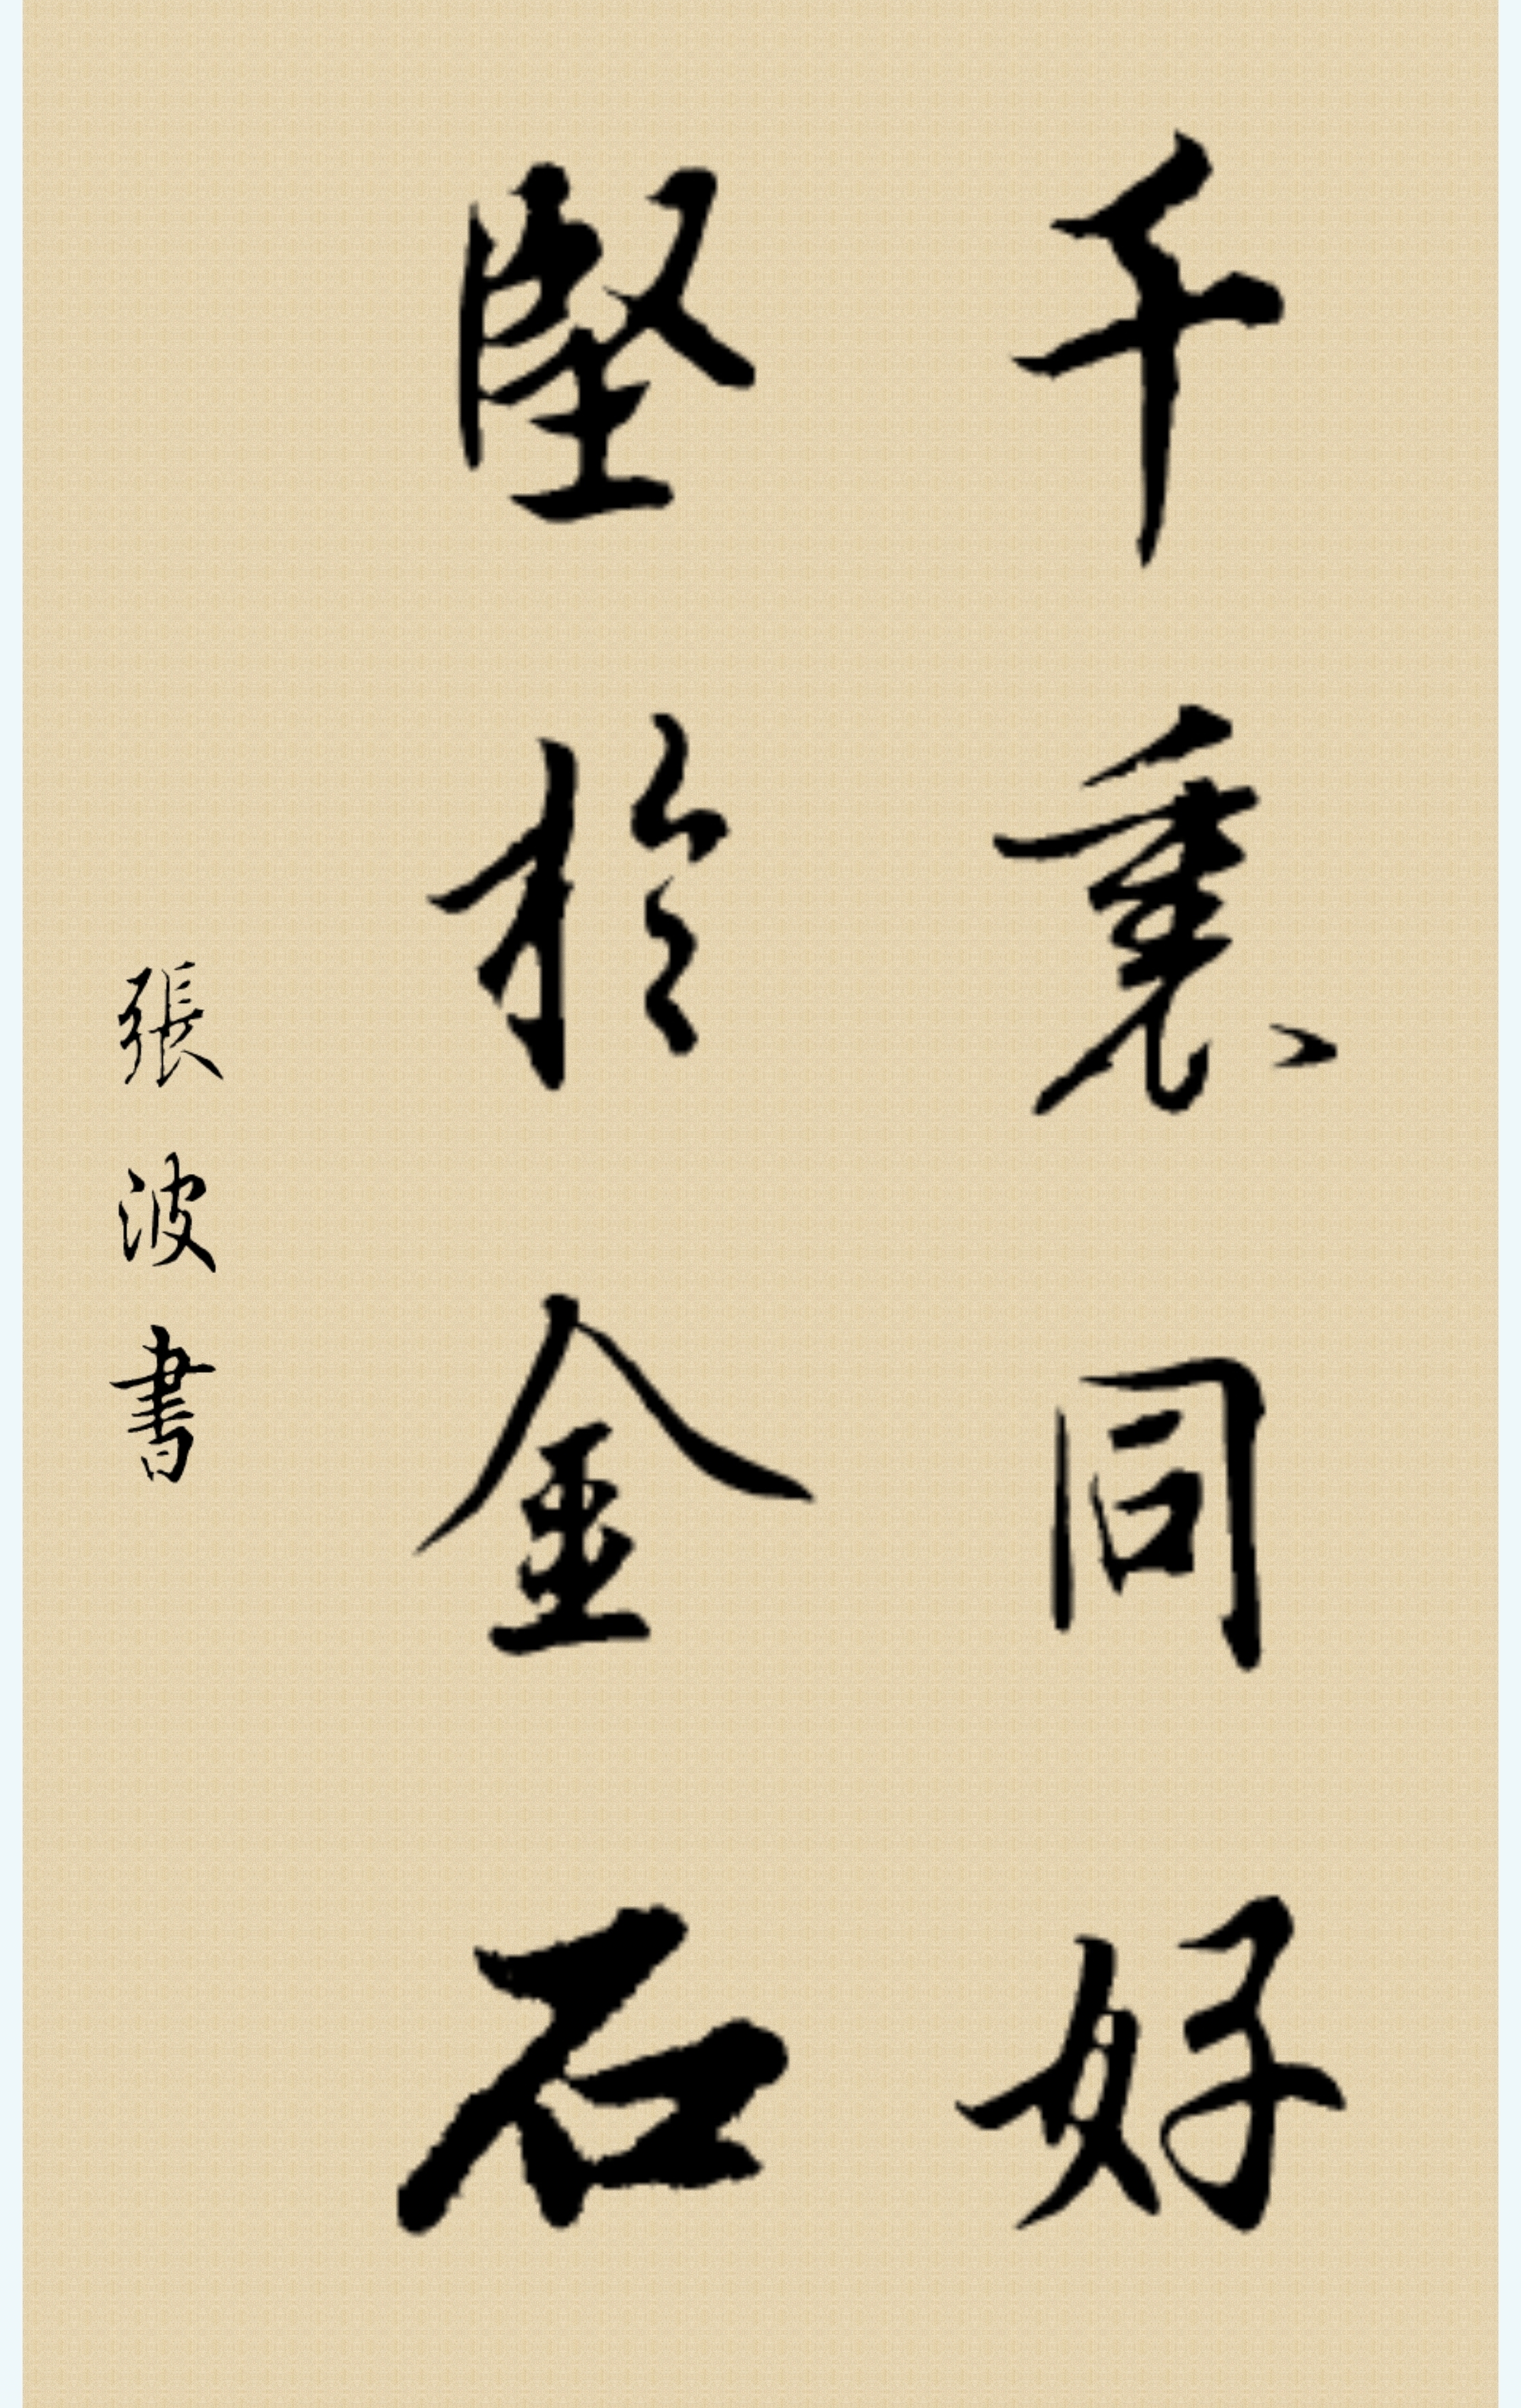 千裏同好
堅於金石
張波書